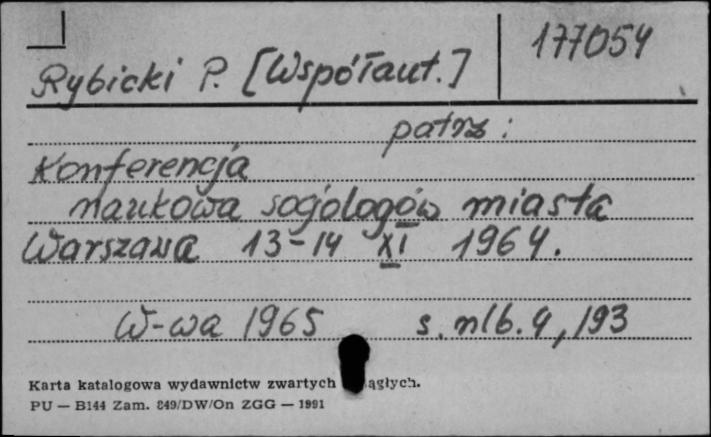 177054
Rybicki P. [Współaut.]
patrz:
Konferencja
naukowa socjologów miasta
Warszawa 13-14 XI 1964.
W-wa 1965 s. nlb. 4, 193
Karta katalogowa wydawnictw zwartych ągłych.
PU — B144 Zam. 849/DW/On ZGG — 1991